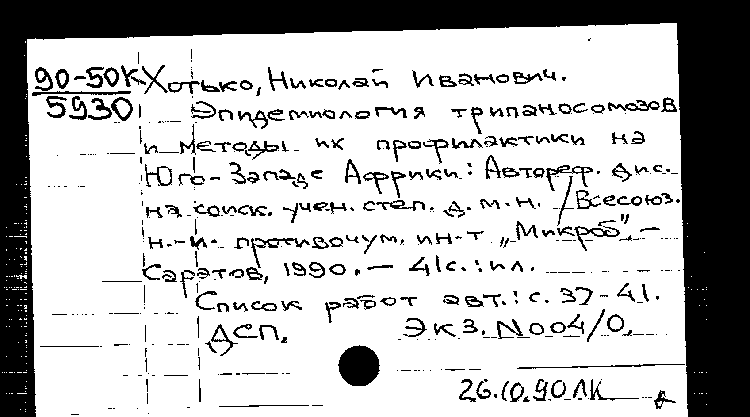 90-50К Хотько, Николай Иванович.
5930 Эпидемиология трипаносомозов
и методы их профилактики на
Юго-Западе Африки: Автореф. дис.
на соиск. учен. степ. д.м.н. /Всесоюз.
н.-и. противочум. ин-т „Микроб".-
Саратов, 1990.- 41с.:ил.
Список работ авт.: с. 37-41.
ДСП. Экз. N004/0.
26.10.90ЛК